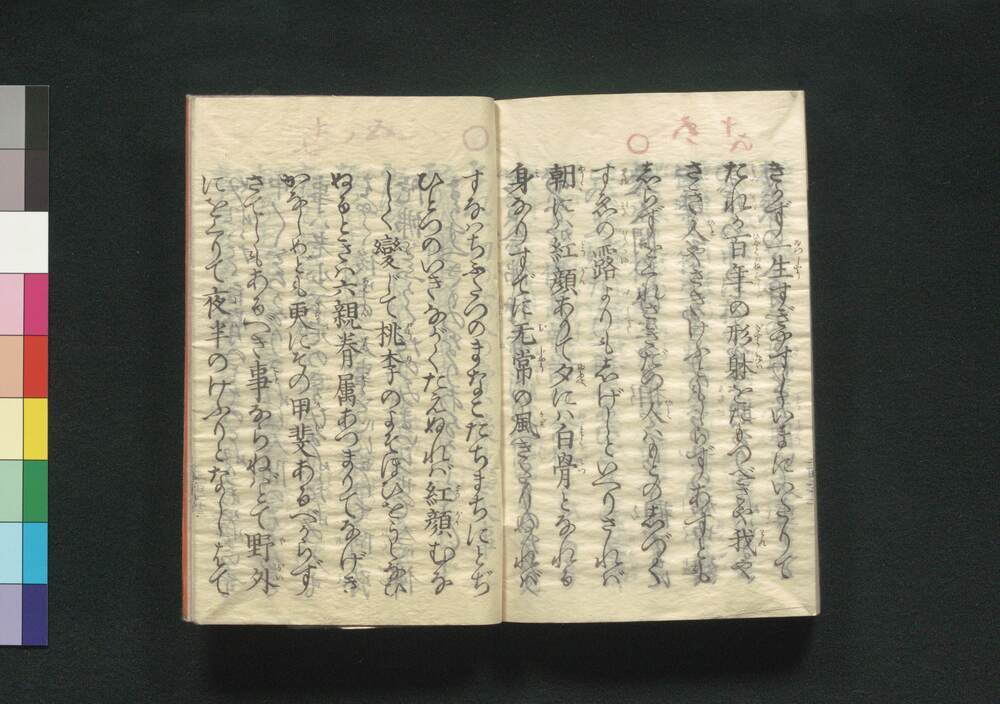 きかず一生すぎやすしいまにいたりて
たれか百年の形躰を たもつべきや我や
さき人やさきけふともしらずあすとも
しらずをくれさきだつ人はもとのしづく
すゑの露よりもしげしといへりされば
朝には紅顔ありて夕には白骨となれる
身なりすでに无常の風きたりぬれば
すなはちふたつのまなこたちまちにとぢ
ひとつのいきながくたえぬれば紅顔むな
しく變じて桃李のよそほひをうしなひ
ぬるときは六親眷属あつまりてなげき
かなしめども更にその甲斐あるべからず
さてしもあるべき事ならねばとて野外
にをくりて夜半のけふりとなしはて